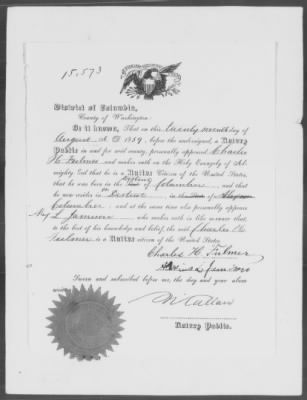 15,573
District of Columbia,
County of Washington
Be it known, That on this twenty seventh day of
August A.D. 1859, before the undersigned, a Notary
Public in and for said county, personally appeared Charles
H. Fulmer and maketh oath on the Holy Evangely of Al-
mighty God that he is a Native Citizen of the United States,
that he was born in the of Columbia, and that
he now resides in District, in the of
Columbia and at the same time also personally appeared
L. Jamison who maketh oath in like manner that,
to the best of his knowledge and belief, the said Charles H.
Fulmer is a Native citizen of the United States.
Charles H. Fulmer
Sworn and subscribed before me, the day and year above
N Callan
Notary Public.